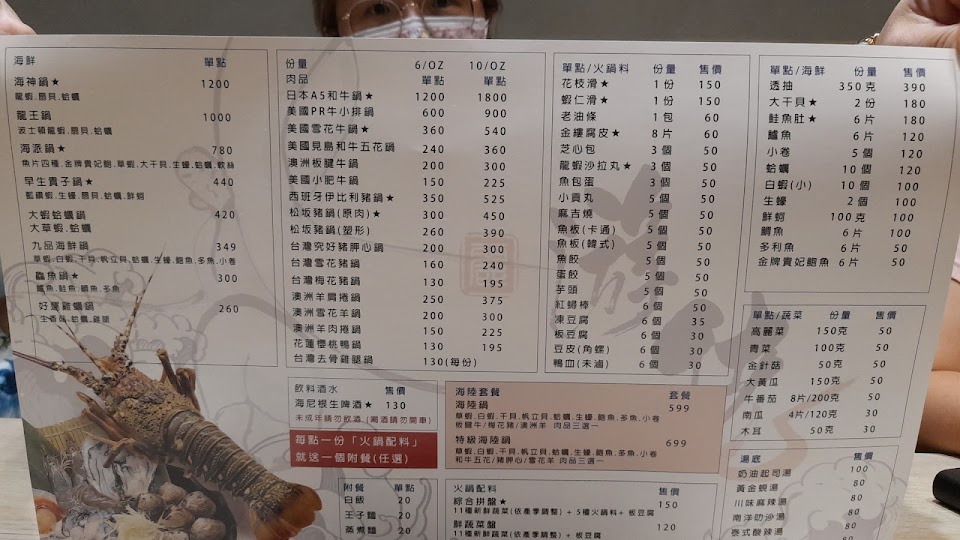 海鮮 單點
海神鍋★ 1200
龍蝦.扇貝.蛤蠣
龍王鍋 1000
波士頓龍蝦.扇貝.蛤蠣
海派鍋★ 780
魚片四種.金牌貴妃鮑.草蝦.大干貝.生蠔.蛤蠣.軟絲
早生貴子鍋★ 440
藍鑽蝦.生蠔.扇貝.蛤蠣.鮮蚵
大蝦蛤蠣鍋 420
大草蝦.蛤蠣
九品海鮮鍋 349
草蝦.白蝦.干貝.帆立貝.蛤蠣.生蠔.鮑魚.多魚.小卷
鱻魚鍋★ 300
鱸魚.鮭魚.鯛魚.多魚
好運雞蠣鍋 260
生香菇.蛤蠣.雞腿
份量 6/OZ 10/OZ
肉品 單點 單點
日本A5和牛鍋★ 1200 1800
美國PR牛小排鍋 600 900
美國雪花牛鍋★ 360 540
美國見島和牛五花鍋 240 360
澳洲板腱牛鍋 200 300
美國小肥牛鍋 150 225
西班牙伊比利豬鍋★ 350 525
松坂豬鍋(原肉)★ 300 450
松坂豬鍋(塑形) 260 390
台灣究好豬胛心鍋 200 300
台灣雪花豬鍋 160 240
台灣梅花豬鍋 130 195
澳洲羊肩捲鍋 250 375
澳洲雪花羊鍋 200 300
澳洲羊肉捲鍋 150 225
花蓮櫻桃鴨鍋 130 195
台灣去骨雞腿鍋 130(每份)
單點/火鍋料 份量 售價
花枝滑★ 1份 150
蝦仁滑★ 1份 150
老油條 1包 60
金縷腐皮★ 8片 60
芝心包 3個 50
龍蝦沙拉丸★ 3個 50
魚包蛋 3個 50
小貢丸 5個 50
麻吉燒 5個 50
魚板(卡通) 5個 50
魚板(韓式) 5個 50
魚餃 5個 50
蛋餃 5個 50
芋頭 5個 50
紅蟳棒 6個 50
凍豆腐 6個 35
板豆腐 6個 30
豆皮(角螺) 6個 30
鴨血(未滷) 6個 30
單點/海鮮 份量 售價
透抽 350克 390
大干貝★ 2份 180
鮭魚肚★ 6片 180
鱸魚 6片 120
小卷 5個 120
蛤蠣 10個 120
白蝦(小) 10個 100
生蠔 2個 100
鮮蚵 100克 100
鯛魚 6片 100
多利魚 6片 50
金牌貴妃鮑魚 6片 50
單點/蔬菜 份量 售價
高麗菜 150克 50
青菜 100克 50
金針菇 50克 50
大黃瓜 150克 50
牛番茄 8片/200克 50
南瓜 4片/120克 30
木耳 50克 30
飲料酒水 售價
海尼根生啤酒★ 130
未成年請勿飲酒(喝酒請勿開車)
每點一份「火鍋配料」
就送一個附餐(任選)
海陸套餐 套餐
海陸鍋 599
草蝦.白蝦.干貝.帆立貝.蛤蠣.生蠔.鮑魚.多魚.小卷
板腱牛/梅花豬/澳洲羊 肉品三選一
特級海陸鍋 699
草蝦.白蝦.干貝.帆立貝.蛤蠣.生蠔.鮑魚.多魚.小卷
和牛五花/豬胛心/雪花羊 肉品三選一
附餐 單點
白飯 20
王子麵 20
蒸煮麵 20
火鍋配料 售價
綜合拼盤★ 150
11種新鮮蔬菜(依產季調整) + 5種火鍋料 + 板豆腐
鮮蔬菜盤 120
11種新鮮蔬菜(依產季調整) + 板豆腐
湯底 售價
奶油起司湯 100
黃金蜆湯 80
川味麻辣湯 80
南洋叻沙湯 80
泰式酸辣湯 80